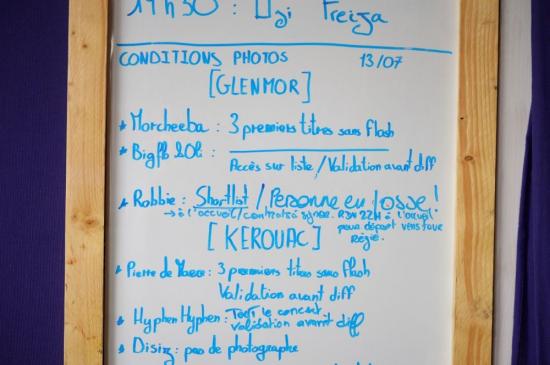 19h30 : Freija
CONDITIONS PHOTOS 13/07
[GLENMOR]
* Morcheeba : 3 premiers titres sans flash
* Bigflo &Oli : Accès sur liste / Validation avant diff
* Robbie : Shortlist / Personne en fosse !
→ à l'accueil / contrat à signer. RDV 22H à l'accueil
pour départ vers fave
Régie.
[KEROUAC]
* Pierre de : 3 premiers titres sans flash
Validation avant diff
* Hyphen Hyphen : Tout le concert
validation avant diff
* Disiz : pas de photographe